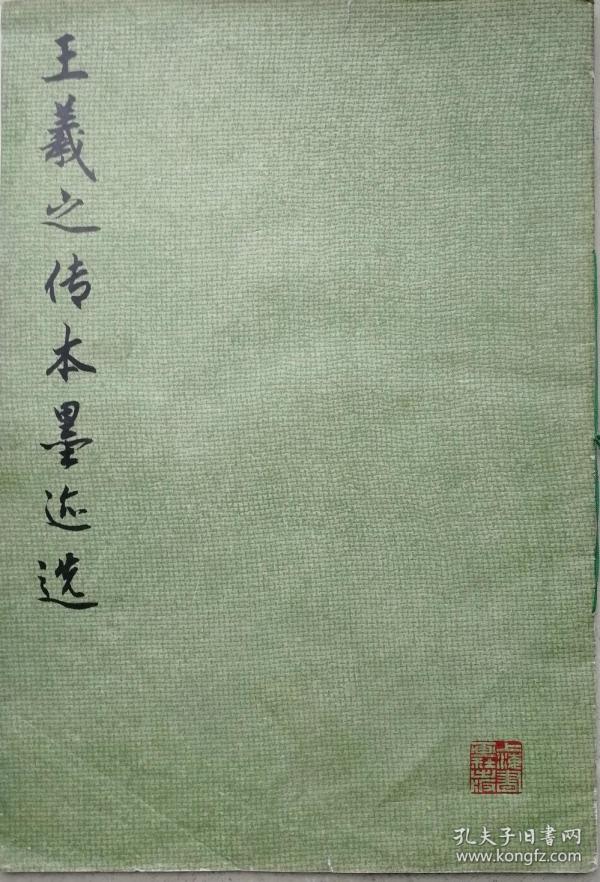 王羲之传本墨迹选
上海书画社
孔夫子旧书网
www.kongfz.com